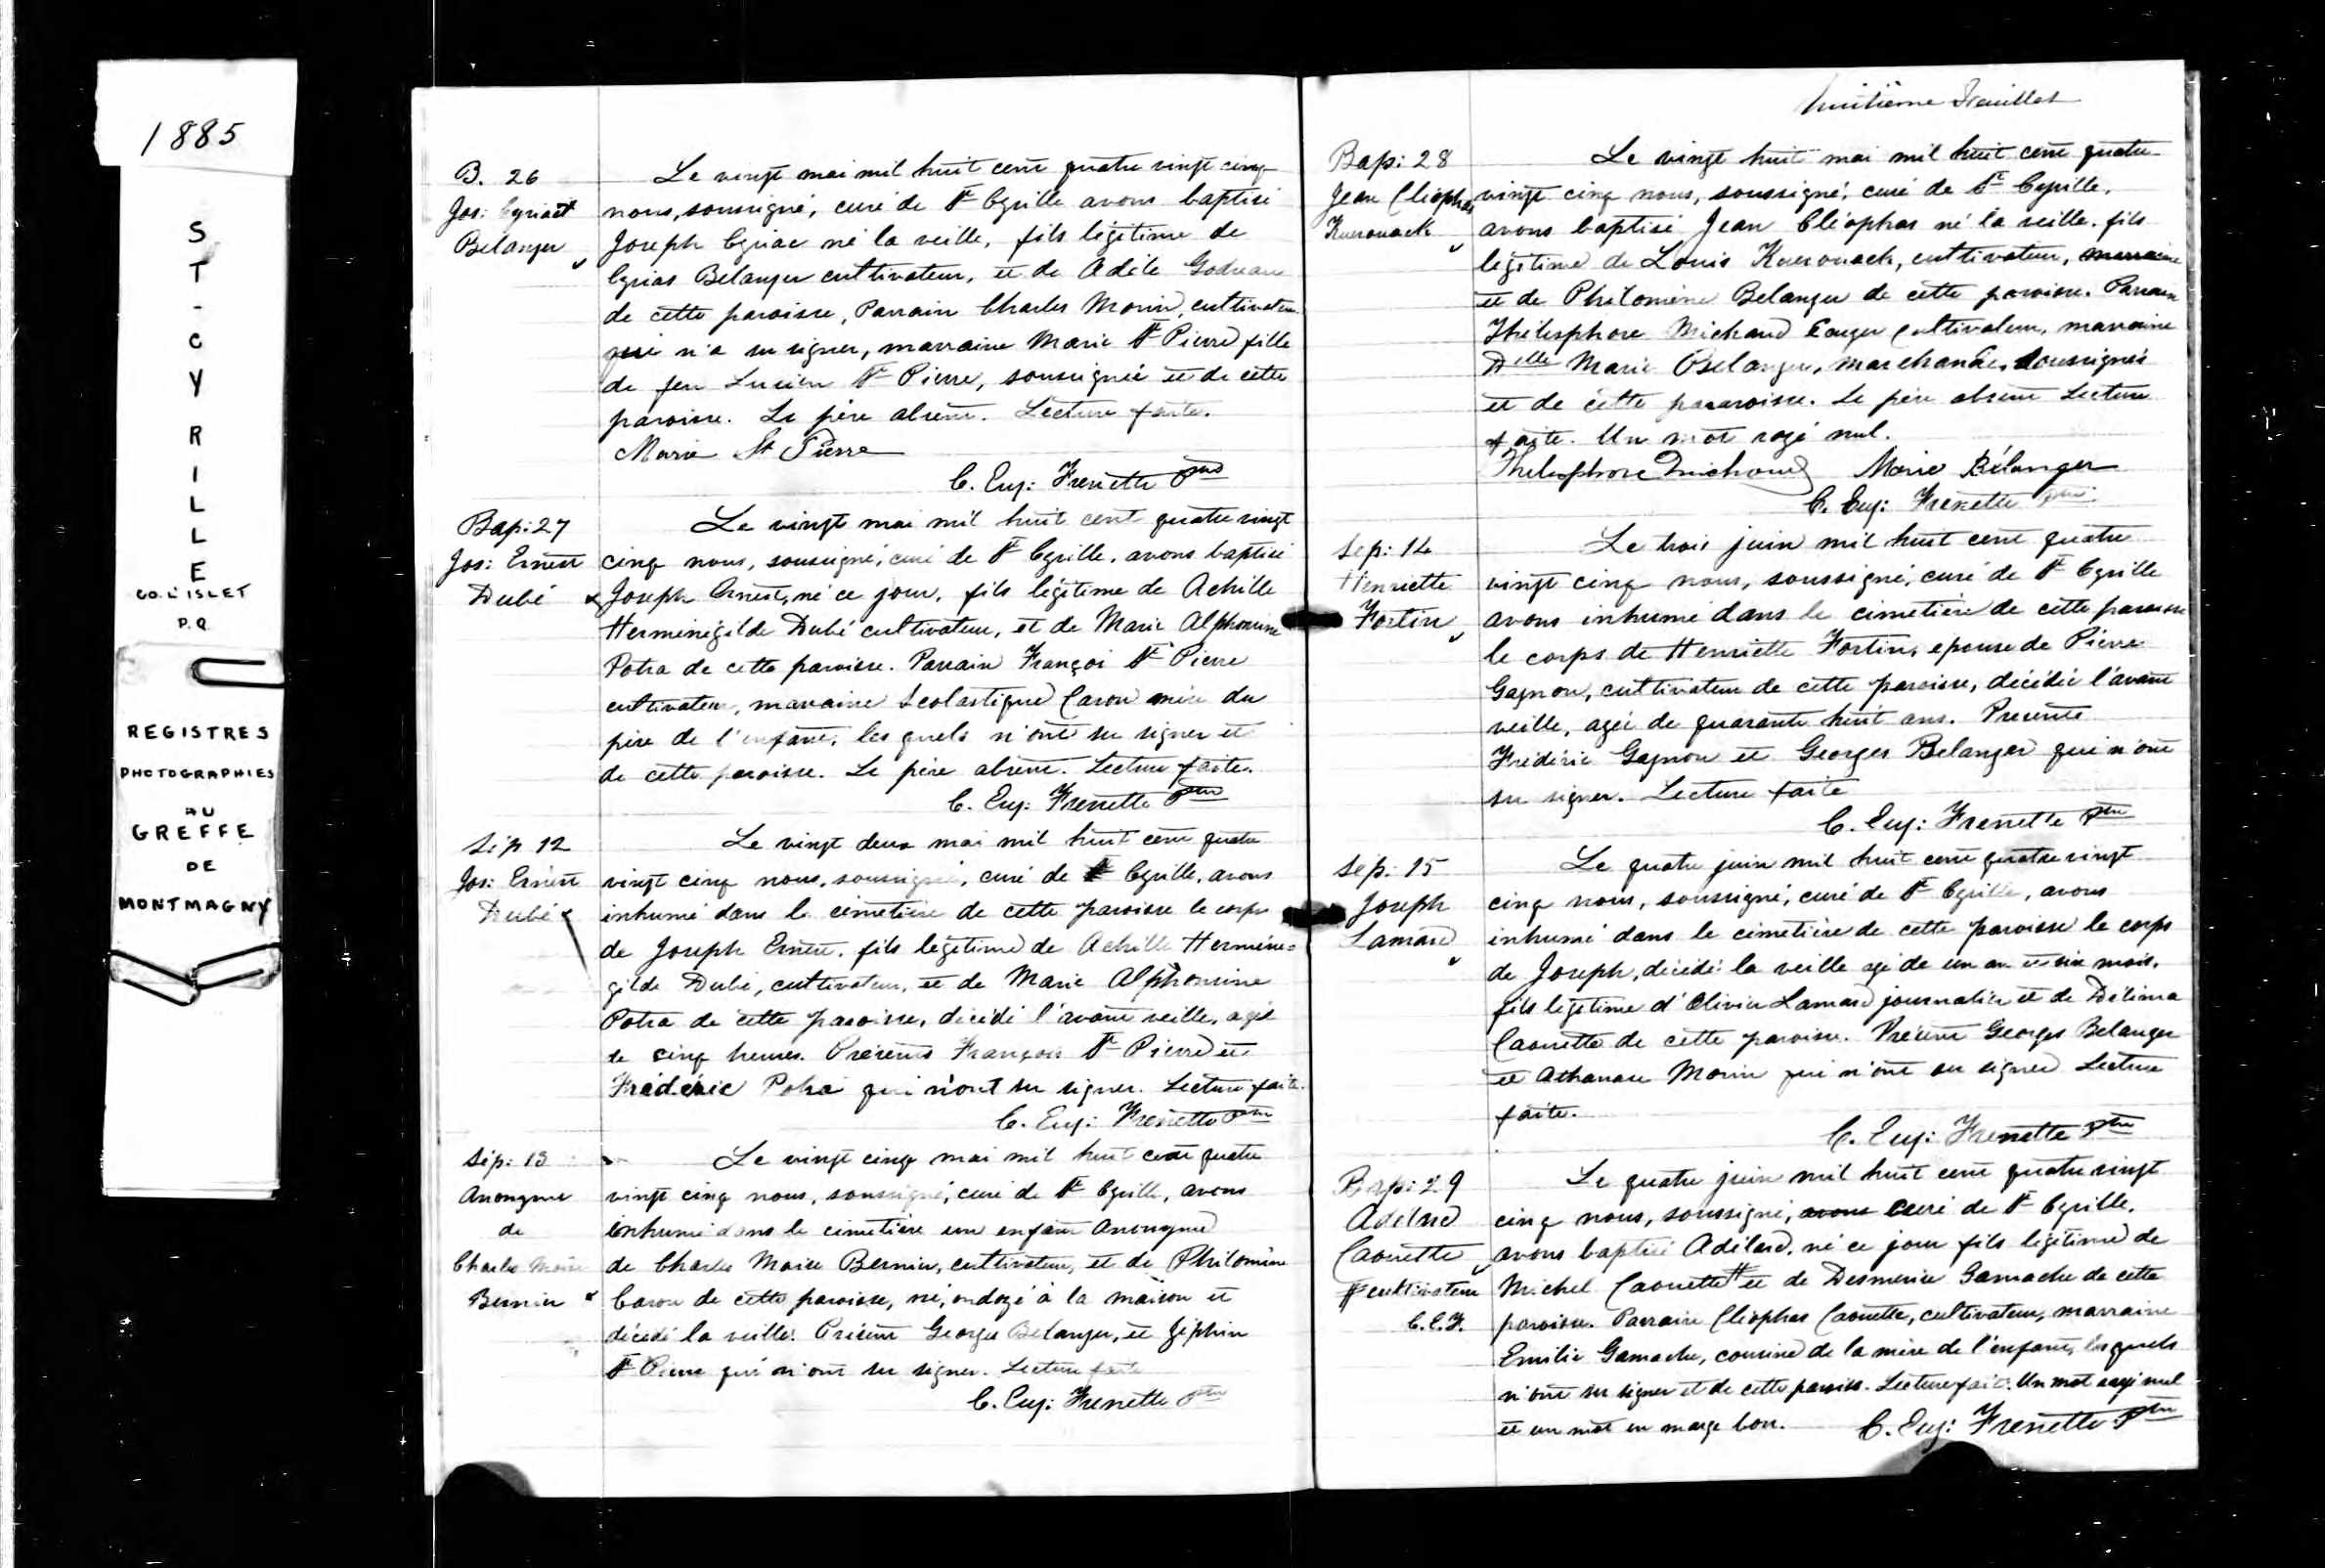 1885
ST-CYRILLE
CO. L'ISLET
P.Q.
REGISTRES
PHOTOGRAPHIES
AU
GREFFE
DE
MONTMAGNY
B. 26
Jos: Cyriac
Belanger
Le vingt mai mil huit cent quatre vingt cinq
nous, soussigné, curé de St Cyrille avons baptisé
Joseph Cyriac né la veille, fils légitime de
Cyrias Belanger cultivateur, et de Adèle Godreau
de cette paroisse, Parrain Charles Morin, cultivateur
qui n'a su signer, marraine Marie St Pierre fille
de feu Lucien St Pierre, soussignée et de cette
paroisse. Le père absent. Lecture faite.
Marie St Pierre
C. Eug: Frenette Ptre
Bap: 27
Jos: Ernest
Dubé
Le vingt mai mil huit cent quatre vingt
cinq nous, soussigné, curé de St Cyrille, avons baptisé
Joseph Ernest, né ce jour, fils légitime de Achille
Herménégilde Dubé cultivateur, et de Marie Alphonsine
Potra de cette paroisse. Parrain Françoi St Pierre
cultivateur, marraine Scolastique Caron mère du
père de l'enfant, les quels n'ont su signer et
de cette paroisse. Le père absent. Lecture faite.
C. Eug: Frenette Ptre
Sép 12
Jos: Ernest
Dubé
Le vingt deux mai mil huit cent quatre
vingt cinq nous, soussigné, curé de St Cyrille, avons
inhumé dans le cimetière de cette paroisse le corps
de Joseph Ernest, fils légitime de Achille Herméné=
gilde Dubé, cultivateur, et de Marie Alphonsine
Potra de cette paroisse, décédé l'avant veille, agé
de cinq heures. Présents François St Pierre et
Frédéric Potra qui n'ont su signer. Lecture faite.
C. Eug: Frenette Ptre
Sép: 13
Anonyme
de
Charles Moïse
Bernier
Le vingt cinq mai mil huit cent quatre
vingt cinq nous, soussigné, curé de St Cyrille, avons
inhumé dans le cimetière un enfant Anonyme
de Charles Moise Bernier, cultivateur, et de Philomène
Caron de cette paroisse, né, ondoyé à la maison et
décédé la veille. Présent Georges Belanger, et Zéphin
St Pierre qui n'ont su signer. Lecture faite
C. Eug: Frenette Ptre
huitième Feuillet
Bap: 28
Jean Cléophas
Kuerouack
Le vingt huit mai mil huit cent quatre
vingt cinq nous, soussigné, curé de St Cyrille,
avons baptisé Jean Cléophas né la veille, fils
légitime de Louis Kuerouack, cultivateur, marraine
et de Philomène Belanger de cette paroisse. Parrain
Thélesphore Michaud Ecuyer Cultivateur, marraine
Delle Marie Belanger, marchande, soussignés
et de cette pararoisse. Le père absent Lecture
faite. Un mot rayé nul.
Thelesphore Michaud Marie Bélanger
C. Eug: Frenette Ptre
Sep: 14
Henriette
Fortin
Le trois juin mil huit cent quatre
vingt cinq nous, soussigné, curé de St Cyrille
avons inhumé dans le cimetière de cette paroisse
le corps de Henriette Fortin, epouse de Pierre
Gagnon, cultivateur de cette paroisse, décédée l'avant
veille, agée de quarante huit ans. Presents
Frédéric Gagnon et Georges Belanger qui n'ont
su signer. Lecture faite
C. Eug: Frenette Ptre
Sep: 15
Joseph
Lamare
Le quatre juin mil huit cent quatre vingt
cinq nous, soussigné, curé de St Cyrille, avons
inhumé dans le cimetière de cette paroisse le corps
de Joseph, décédé la veille agé de un an et six mois,
fils légitime d'Olivier Lamare journalier et de Délima
Caouette de cette paroisse. Présent Georges Belanger
et Athanase Morin qui n'ont su signer Lecture
faite.
C. Eug: Frenette Ptre
Bap: 29
Adelard
Caouette
# cultivateur
C.E.F.
Le quatre juin mil huit cent quatre vingt
cinq nous, soussigné, avons curé de St Cyrille,
avons baptisé Adélard, né ce jour fils légitime de
Michel Caouette # et de Desmerise Gamache de cette
paroisse. Parrain Cléophas Caouette, cultivateur, marraine
Emilie Gamache, cousine de la mère de l'enfant, lesquels
n'ont su signer et de cette paroisse. Lecture faite. Un mot rayé nul
et un mot en marge bon. C. Eug: Frenette Ptre